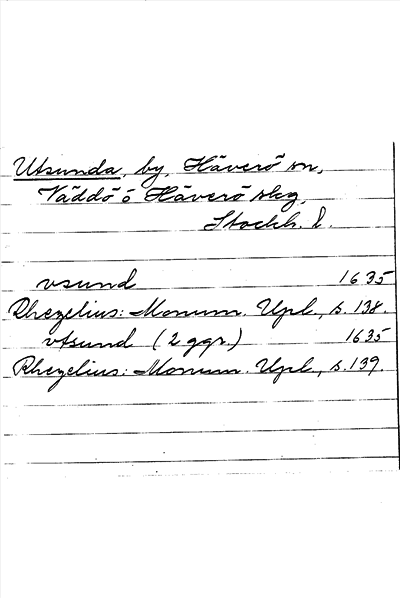 Utsunda, by, Häverö sn,
Väddö o Häverö skg,
Stockh. l.
vsund 1635
Rhezelius: Monum. Upl., s. 138.
vtsund (2 ggr.) 1635
Rhezelius: Monum. Upl., s. 139.